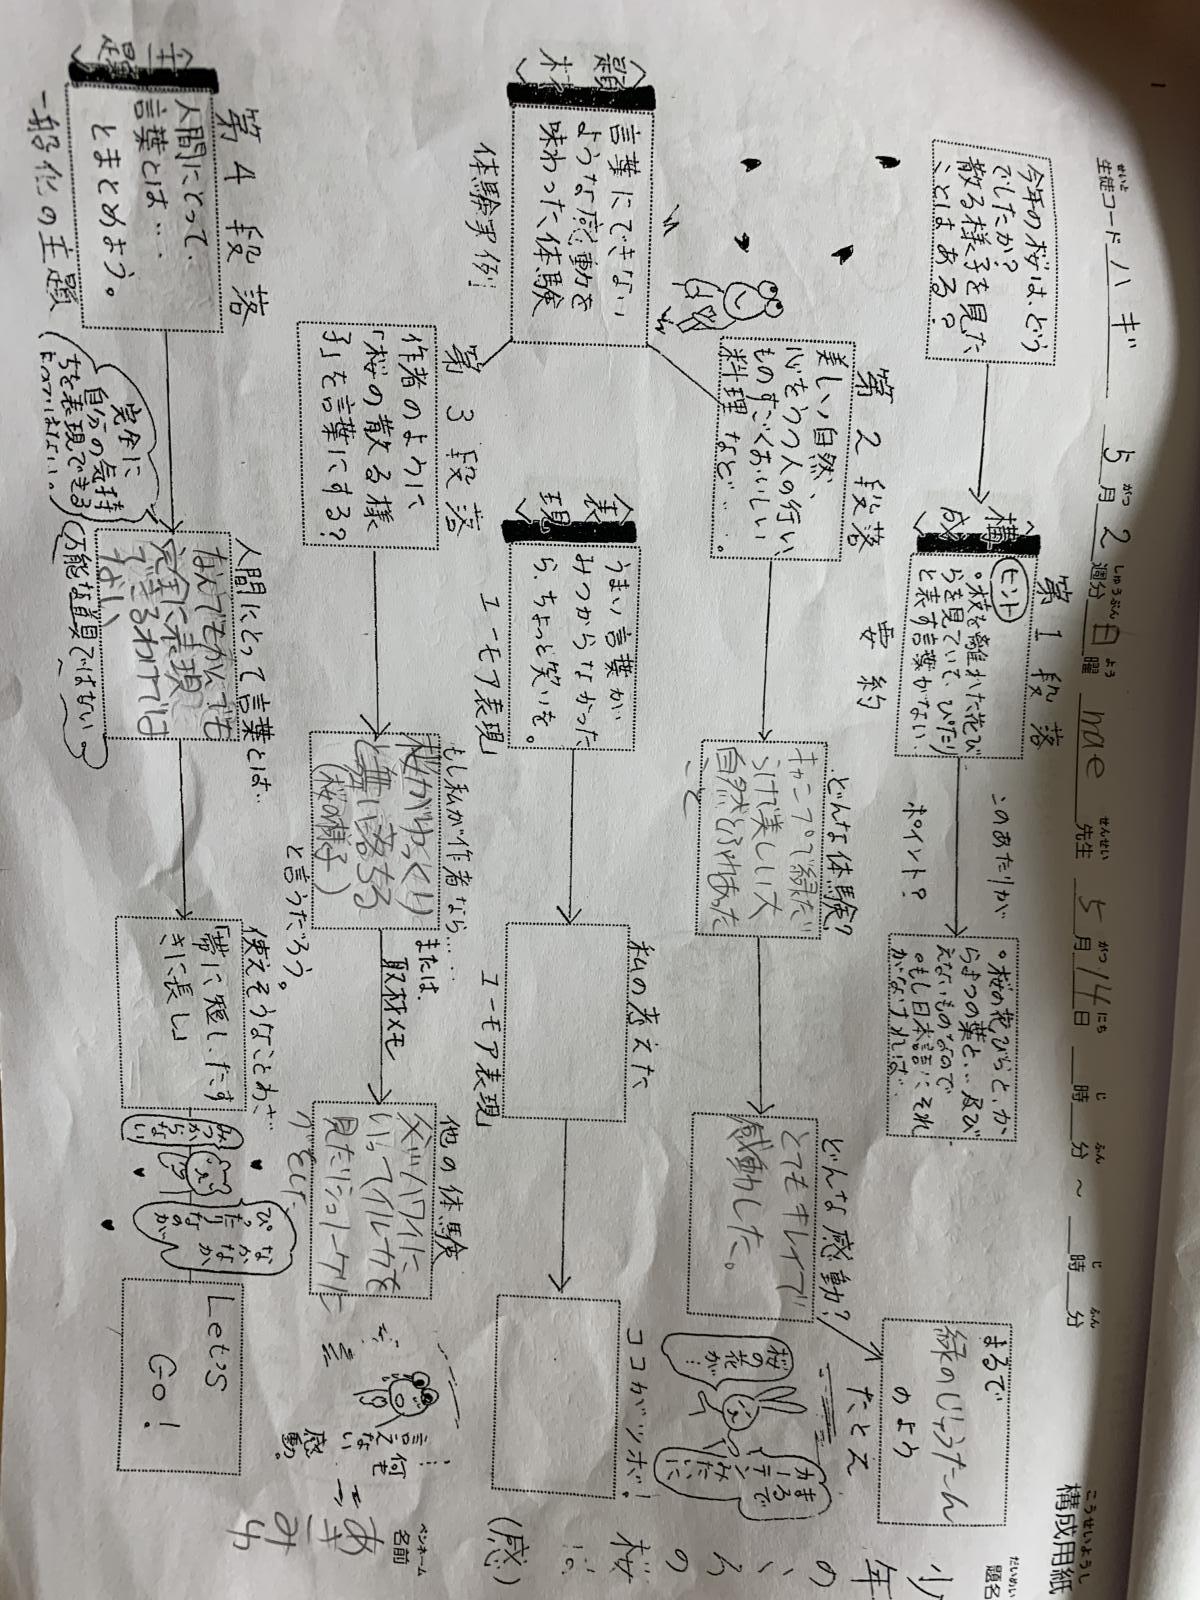 構成用紙
こうせいようし
生徒コード ハギ 5月2週分 日曜 nae 先生 5月14日 時 分 ～ 時 分
せいと がつ しゅうぶん よう せんせい がつ にち じ ふん じ ふん
題名
だいめい
少年のころの桜は
(感)
ペンネーム
名前
あきみ
今年の桜は、どう
でしたか？
散る様子を見た
ことはある？
〈構成〉
第1段落
要約
ヒント
。枝を離れた花び
らを見ていて、ぴったり
と表す言葉がない。
このあたりが
ポイント？
。桜の花びらと、か
らまつの葉と、、及び
えないものなので
。もし日本語に、それ
がなければ…
第2段落
〈題材〉
言葉にできない
ような感動を
味わった体験
体験実例
美しい自然、
心をうつ人の行い、
ものすごくおいしい
料理 など…。
どんな体験？
キャンプで緑だ
らけで美しい大
自然とふれあった
こと
どんな感動？
とてもキレイで
感動した。
まるで
緑のじゅうたん
のよう
たとえ
桜の花が…
まるでカーテンみたいに
〈表現〉
うまい言葉が
みつからなかった
ら、ちょっと笑いを。
ユーモア表現
私の考えた
ユーモア表現
ココがツボ！
第3段落
作者のように
「桜の散る様
子」を言葉にする？
もし私が作者なら…
桜がゆっくり
と舞い落ちる
(桜の様子)
と言うだろう。
または、
取材メモ
他の体験
父がハワイに
いってイルカを
見たりシュノーケルを
したりした
…！
何も
言えない
感動。
第4段落
〈主題〉
人間にとって
言葉とは…
とまとめよう。
一般化の主題
完全に
自分の気持
ちを表現できる
わけではない。。
人間にとって言葉とは、
なんでもかんでも
完全に表現
できるわけでは
ない
万能な道具ではない
使えそうなことわざ…
「帯に短し、たす
きに長し」
みつからない
なかなか
ぴったりなのが
Let's
GO！